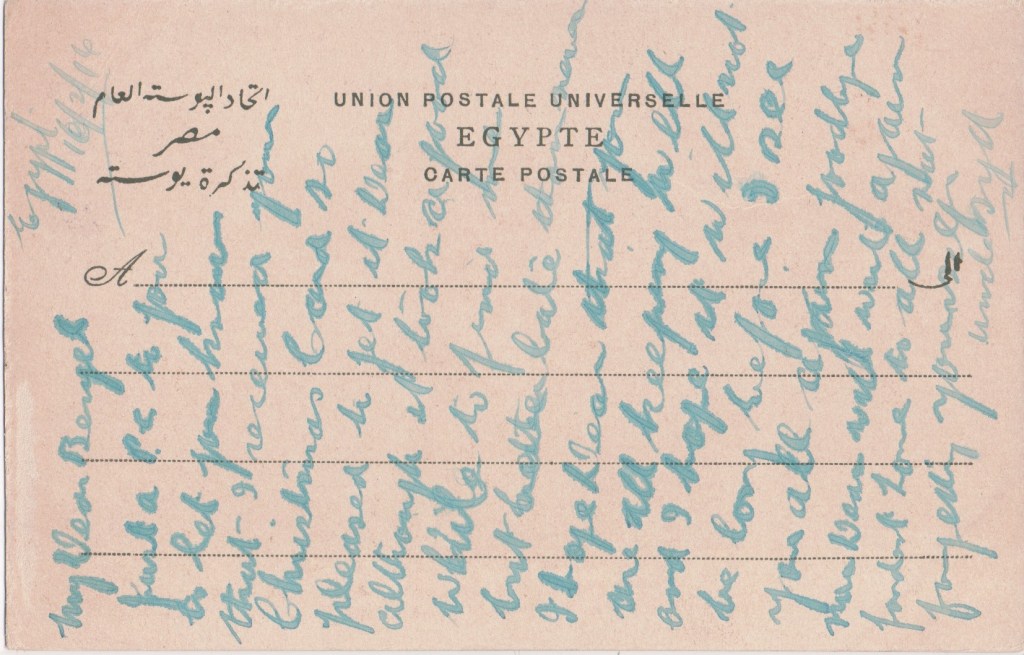 اتحاد البوسته العام
مصر
تذكرة بوسته
UNION POSTALE UNIVERSELLE
EGYPTE
CARTE POSTALE
A
Egypt
16/2/16
My Dear
Just a P.C. to you
to let you know
that I received your
Christmas Card so
pleased to get it Dear
although it took a good
while to find me
but better late than never
I hope Dear that you
are all keeping well
and I hope it will not
be long before I see
you all again
Dear well goodbye
fondest love to all